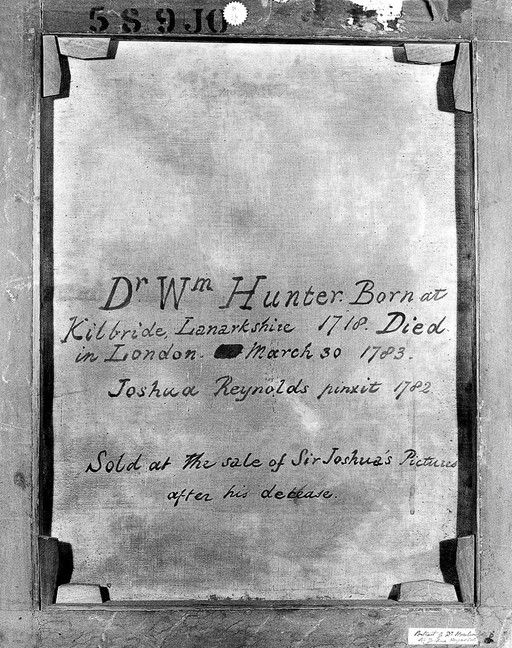 5S9JO
Dr Wm Hunter. Born at
Kilbride, Lanarkshire 1718. Died
in London. March 30 1783.
Joshua Reynolds pinxit 1782
Sold at the sale of Sir Joshua's Pictures
after his decease.
Portrait of Dr Hunter